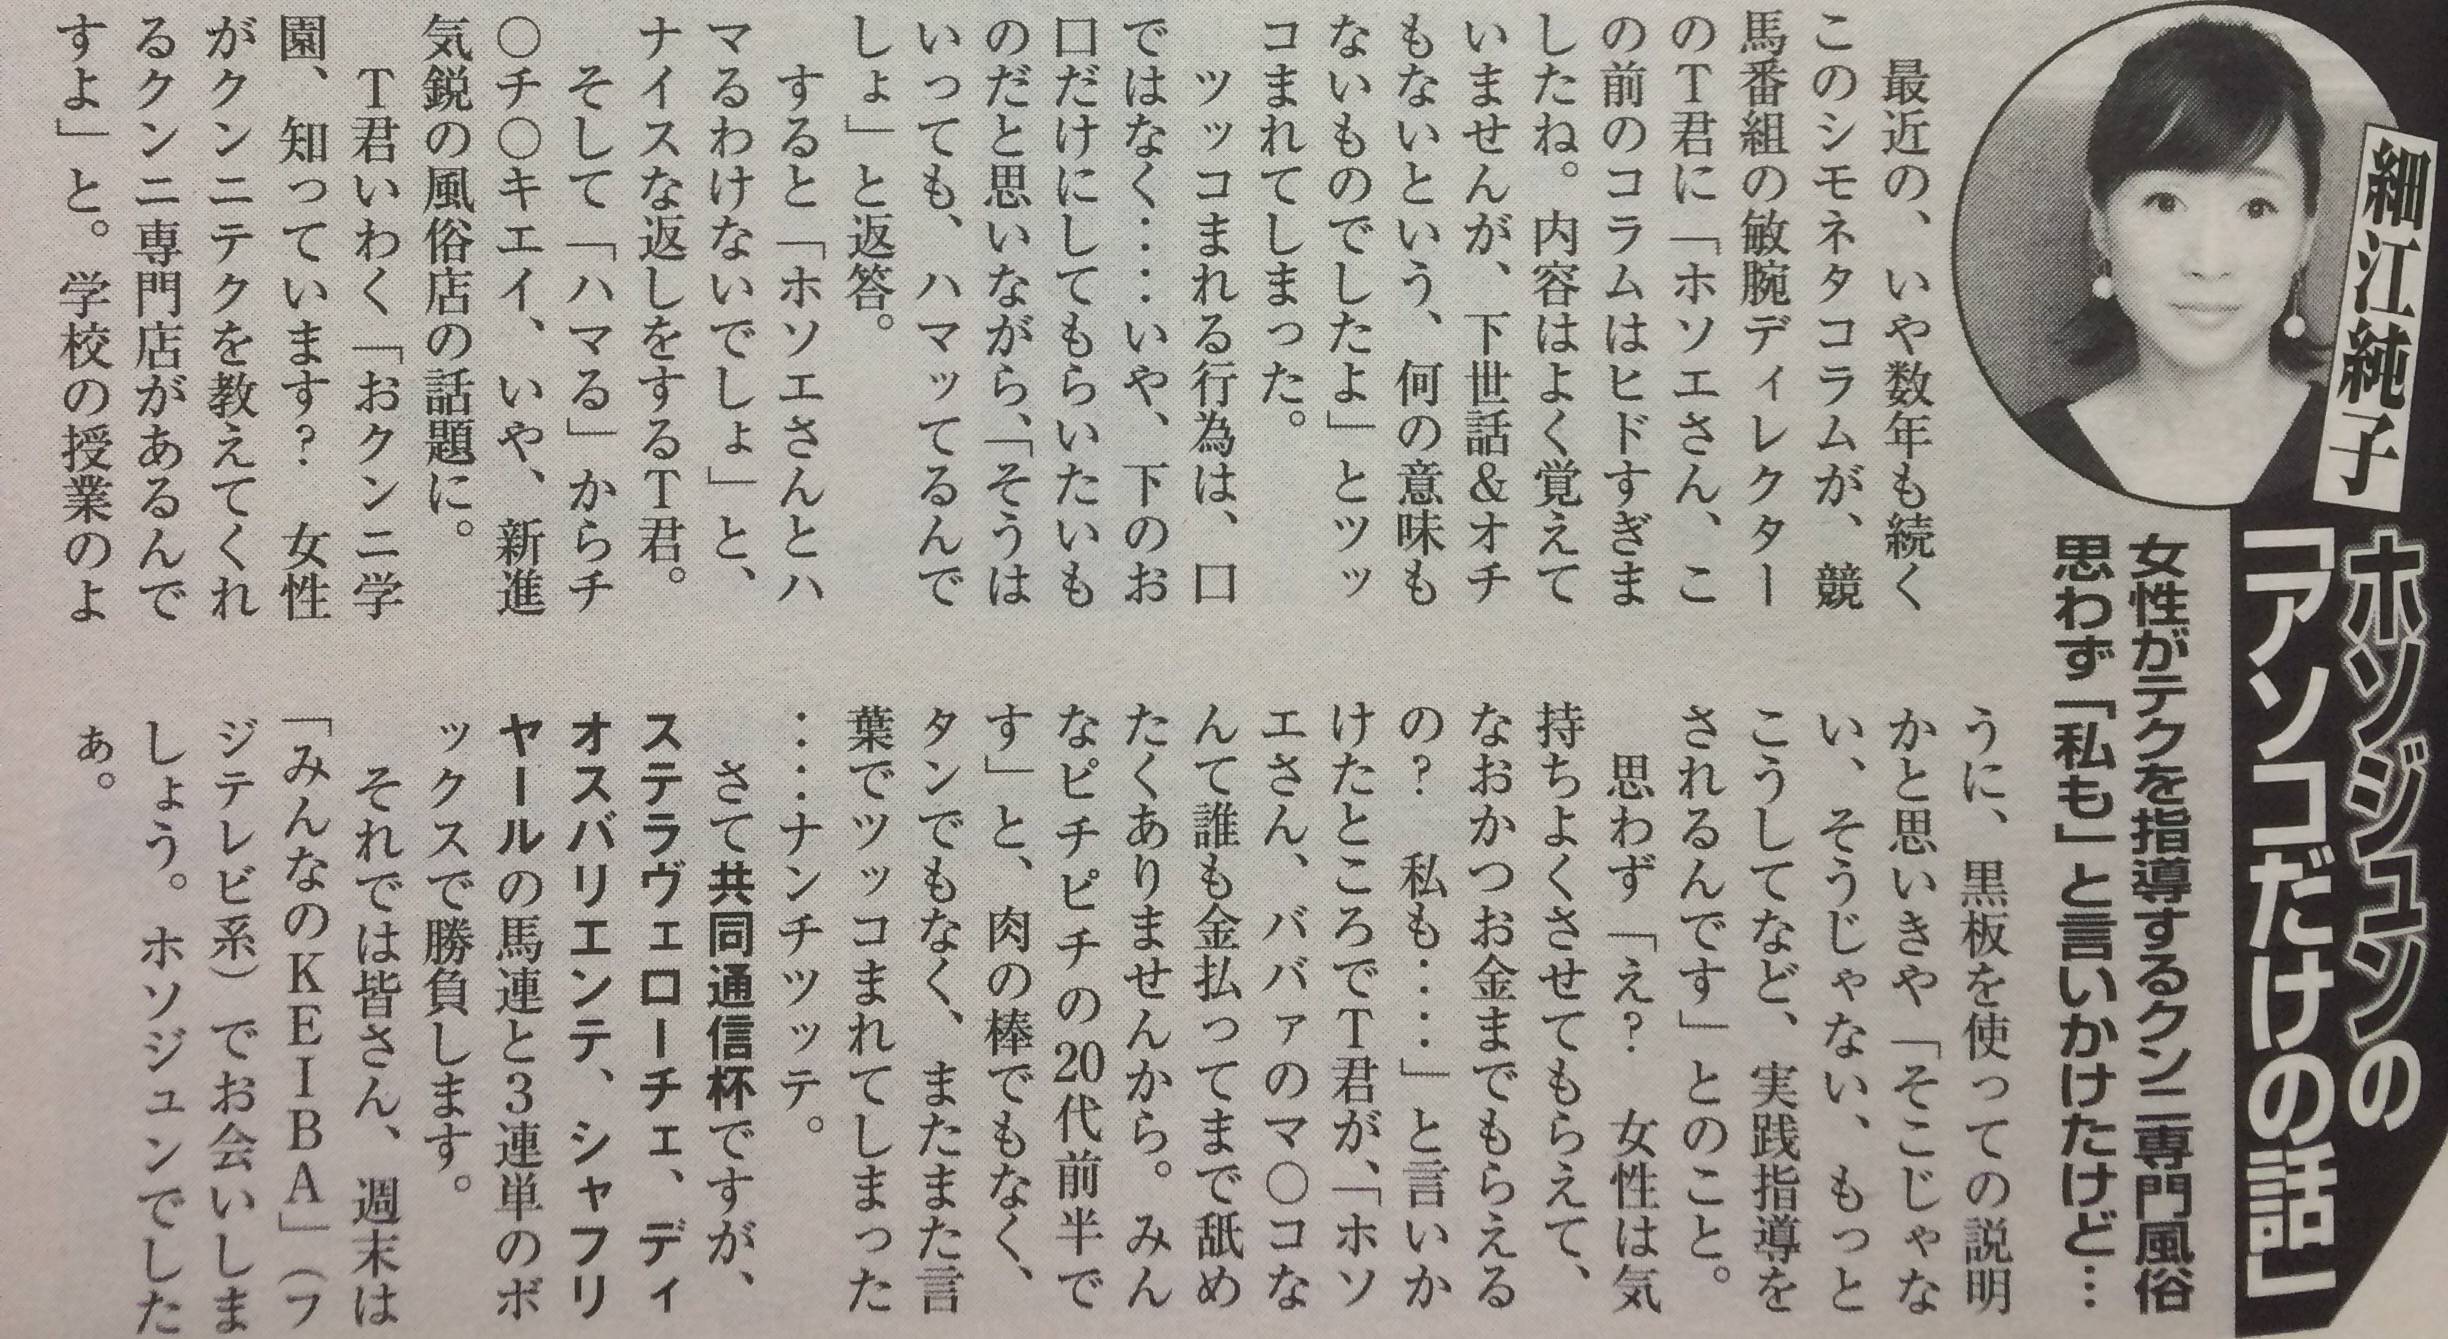 細江純子
ホソジュンの
「アソコだけの話」
女性がテクを指導するクンニ専門風俗
思わず「私も」と言いかけたけど…
最近の、いや数年も続く
このシモネタコラムが、競
馬番組の敏腕ディレクター
のT君に「ホソエさん、こ
の前のコラムはヒドすぎま
したね。内容はよく覚えて
いませんが、下世話&オチ
もないという、何の意味も
ないものでしたよ」とツッ
コまれてしまった。
ツッコまれる行為は、口
ではなく……いや、下のお
口だけにしてもらいたいも
のだと思いながら、「そうは
いっても、ハマッてるんで
しょ」と返答。
すると「ホソエさんとハ
マるわけないでしょ」と、
ナイスな返しをするT君。
そして「ハマる」からチ
○チ○キエイ、いや、新進
気鋭の風俗店の話題に。
T君いわく「おクンニ学
園、知っています? 女性
がクンニテクを教えてくれ
るクンニ専門店があるんで
すよ」と。学校の授業のよ
うに、黒板を使っての説明
かと思いきや「そこじゃな
い、そうじゃない、もっと
こうしてなど、実践指導を
されるんです」とのこと。
思わず「え? 女性は気
持ちよくさせてもらえて、
なおかつお金までもらえる
の? 私も……」と言いか
けたところでT君が、「ホソ
エさん、ババァのマ○コな
んて誰も金払ってまで舐め
たくありませんから。みん
なピチピチの20代前半で
す」と、肉の棒でもなく、
タンでもなく、またまた言
葉でツッコまれてしまった
……ナンチツッテ。
さて共同通信杯ですが、
ステラヴェローチェ、ディ
オスバリエンテ、シャフリ
ヤールの馬連と3連単のボ
ックスで勝負します。
それでは皆さん、週末は
「みんなのKEIBA」(フ
ジテレビ系)でお会いしま
しょう。ホソジュンでした
ぁ。